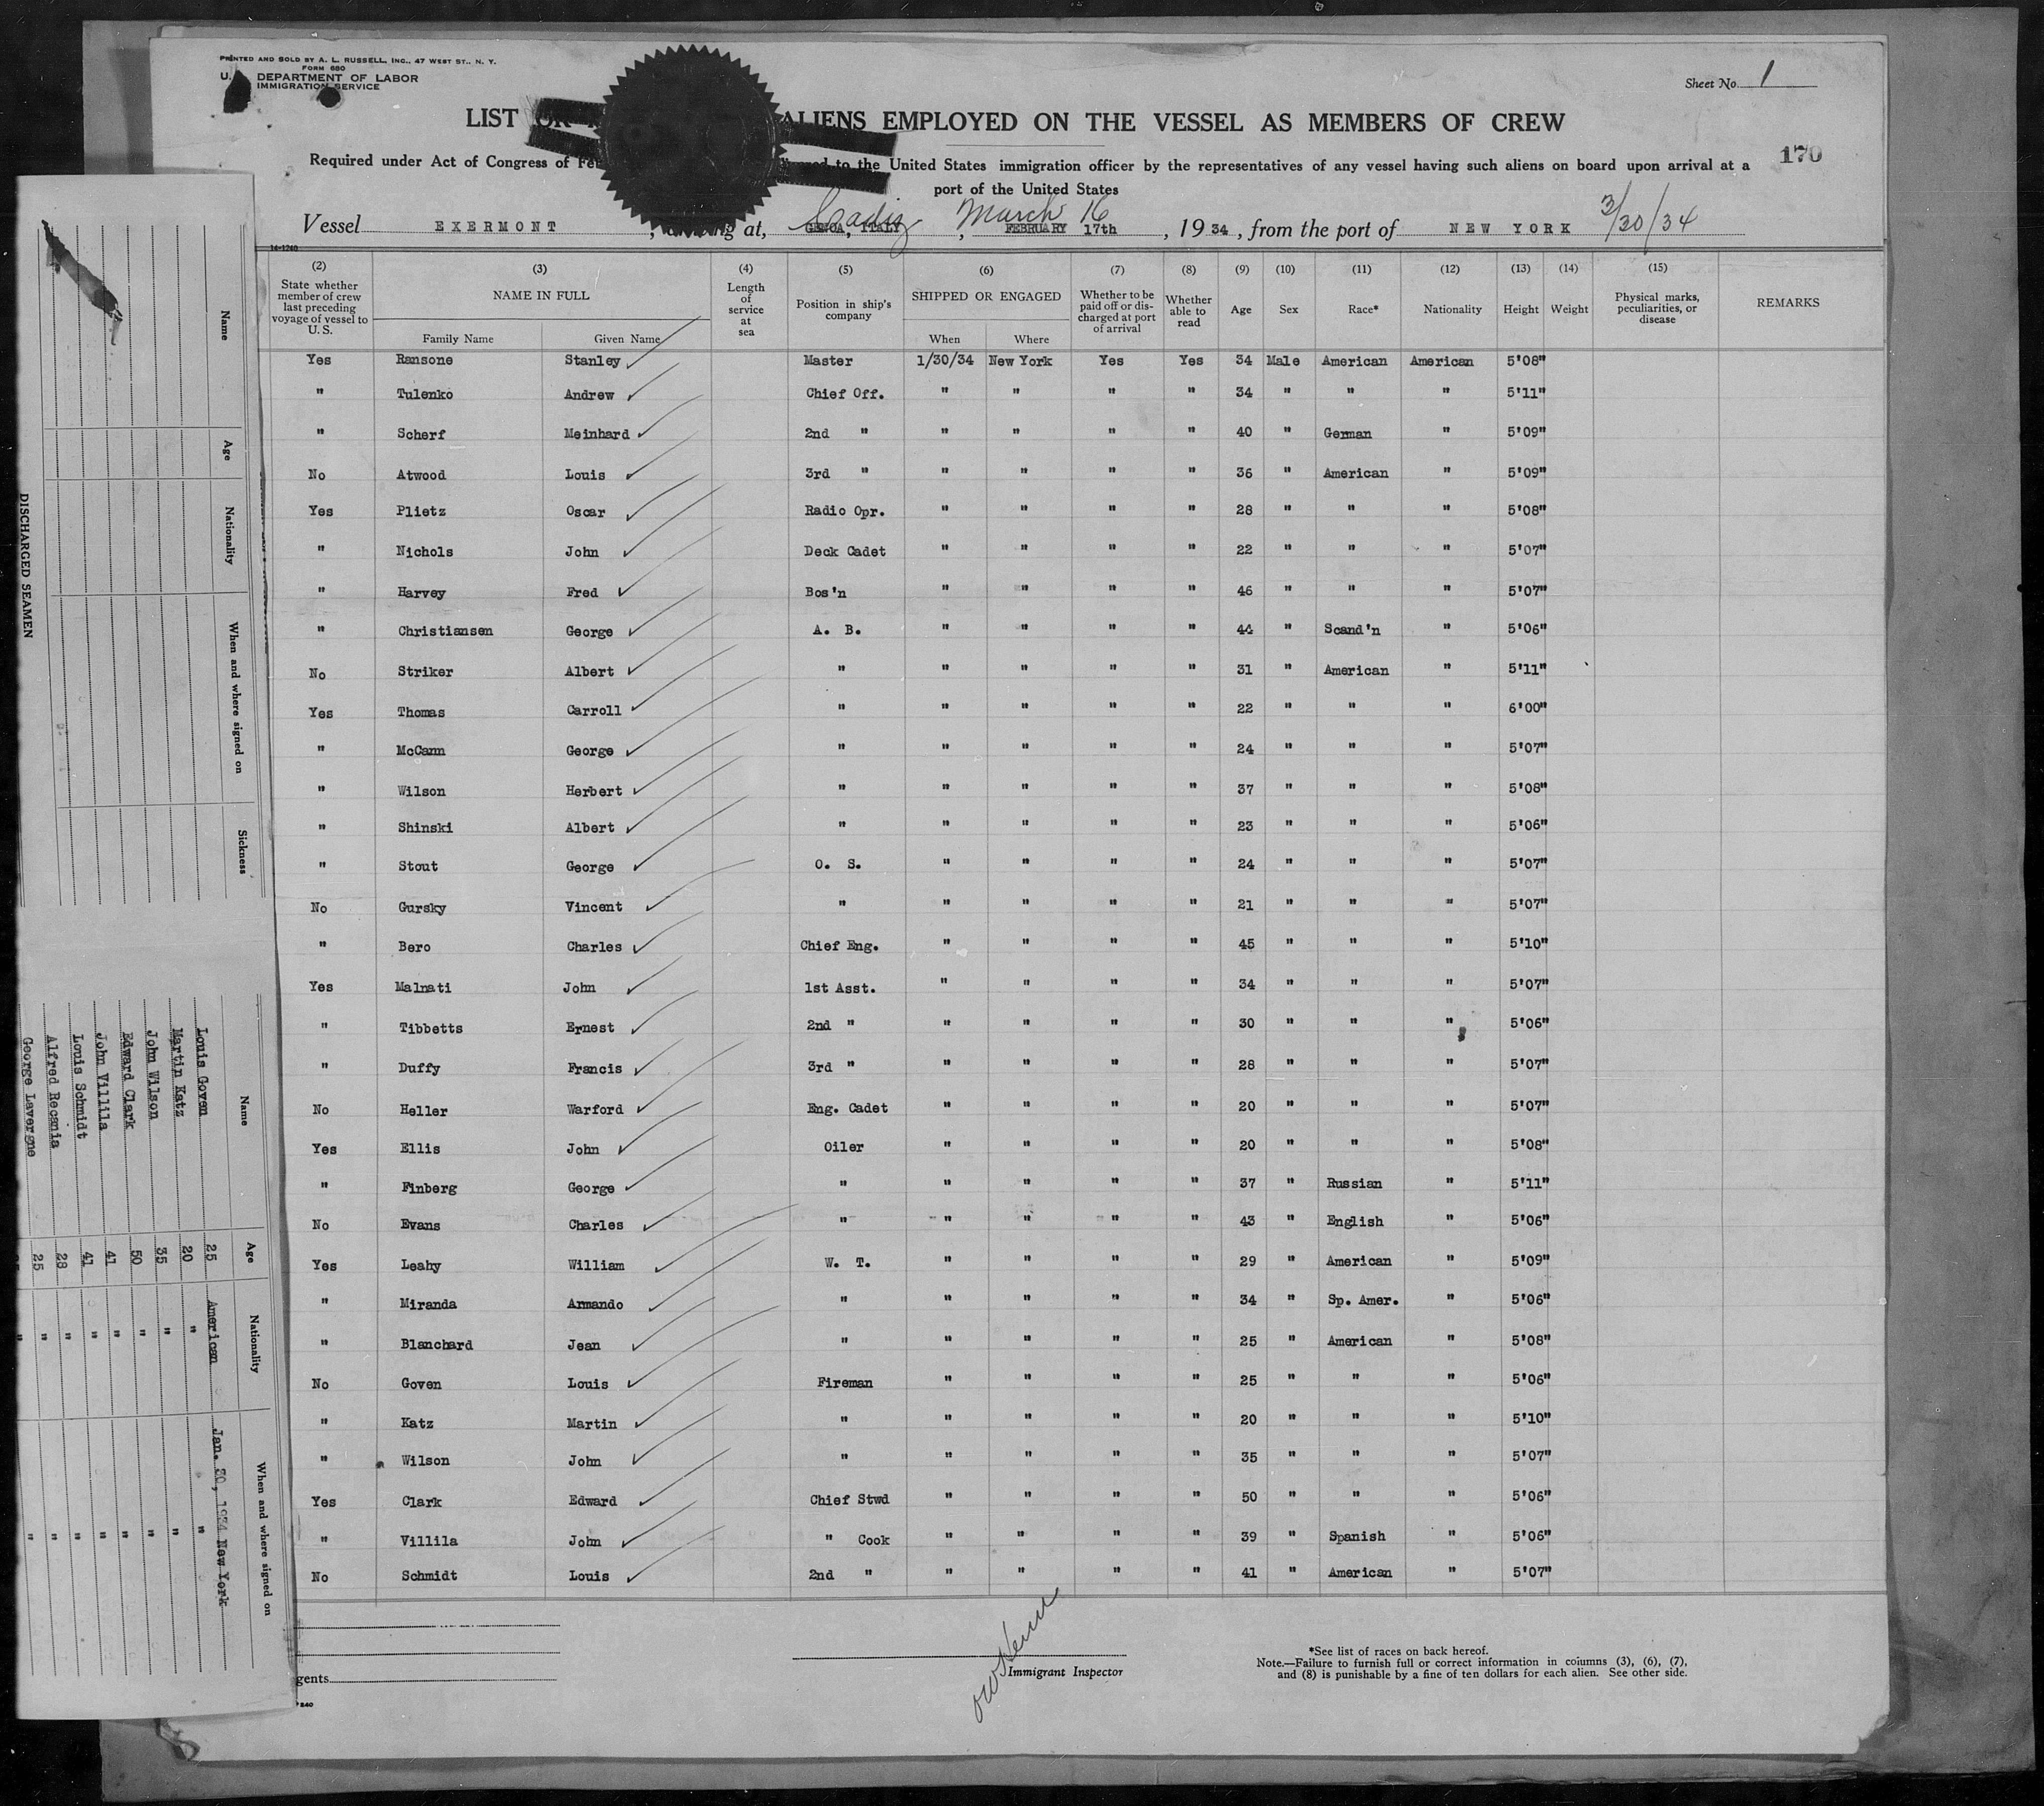 PRINTED AND SOLD BY A. L. RUSSELL, INC., 47 WEST ST., N. Y.
FORM 680
U. DEPARTMENT OF LABOR
IMMIGRATION SERVICE
Sheet No. 1
LIST OR ALIENS EMPLOYED ON THE VESSEL AS MEMBERS OF CREW
170
Required under Act of Congress of to the United States immigration officer by the representatives of any vessel having such aliens on board upon arrival at a
port of the United States
Cadiz March 16 3/30/34
Vessel EXERMONT , at, GENOA, ITALY , FEBRUARY 17th , 1934, from the port of NEW YORK
14-1240
(2) (3) (4) (5) (6) (7) (8) (9) (10) (11) (12) (13) (14) (15)
State whether member of crew last preceding voyage of vessel to U. S. NAME IN FULL Length of service at sea Position in ship's company SHIPPED OR ENGAGED Whether to be paid off or discharged at port of arrival Whether able to read Age Sex Race* Nationality Height Weight Physical marks, peculiarities, or disease REMARKS
Family Name Given Name When Where
Yes Ransone Stanley Master 1/30/34 New York Yes Yes 34 Male American American 5'08"
" Tulenko Andrew Chief Off. " " " " 34 " " " 5'11"
" Scherf Meinhard 2nd " " " " " 40 " German " 5'09"
No Atwood Louis 3rd " " " " " 36 " American " 5'09"
Yes Plietz Oscar Radio Opr. " " " " 28 " " " 5'08"
" Nichols John Deck Cadet " " " " 22 " " " 5'07"
" Harvey Fred Bos'n " " " " 46 " " " 5'07"
" Christiansen George A. B. " " " " 44 " Scand'n " 5'06"
No Striker Albert " " " " " 31 " American " 5'11"
Yes Thomas Carroll " " " " " 22 " " " 6'00"
" McCann George " " " " " 24 " " " 5'07"
" Wilson Herbert " " " " " 37 " " " 5'08"
" Shinski Albert " " " " " 23 " " " 5'06"
" Stout George O. S. " " " " 24 " " " 5'07"
No Gursky Vincent " " " " " 21 " " " 5'07"
" Bero Charles Chief Eng. " " " " 45 " " " 5'10"
Yes Malnati John 1st Asst. " " " " 34 " " " 5'07"
" Tibbetts Ernest 2nd " " " " " 30 " " " 5'06"
" Duffy Francis 3rd " " " " " 28 " " " 5'07"
No Heller Warford Eng. Cadet " " " " 20 " " " 5'07"
Yes Ellis John Oiler " " " " 20 " " " 5'08"
" Finberg George " " " " " 37 " Russian " 5'11"
No Evans Charles " " " " " 43 " English " 5'06"
Yes Leahy William W. T. " " " " 29 " American " 5'09"
" Miranda Armando " " " " " 34 " Sp. Amer. " 5'06"
" Blanchard Jean " " " " " 25 " American " 5'08"
No Goven Louis Fireman " " " " 25 " " " 5'06"
" Katz Martin " " " " " 20 " " " 5'10"
" Wilson John " " " " " 35 " " " 5'07"
Yes Clark Edward Chief Stwd " " " " 50 " " " 5'06"
" Villila John " Cook " " " " 39 " Spanish " 5'06"
No Schmidt Louis 2nd " " " " " 41 " American " 5'07"
Immigrant Inspector
gents
240
*See list of races on back hereof.
Note.—Failure to furnish full or correct information in columns (3), (6), (7),
and (8) is punishable by a fine of ten dollars for each alien. See other side.
DISCHARGED SEAMEN
Name Age Nationality When and where signed on Sickness
Name Age Nationality When and where signed on
Louis Goven 25 American Jan. 30, 1934 New York
Martin Katz 20 " "
John Wilson 35 " "
Edward Clark 50 " "
John Villila 41 " "
Louis Schmidt 41 " "
Alfred Recania 28 " "
George Lavergne 25 " "